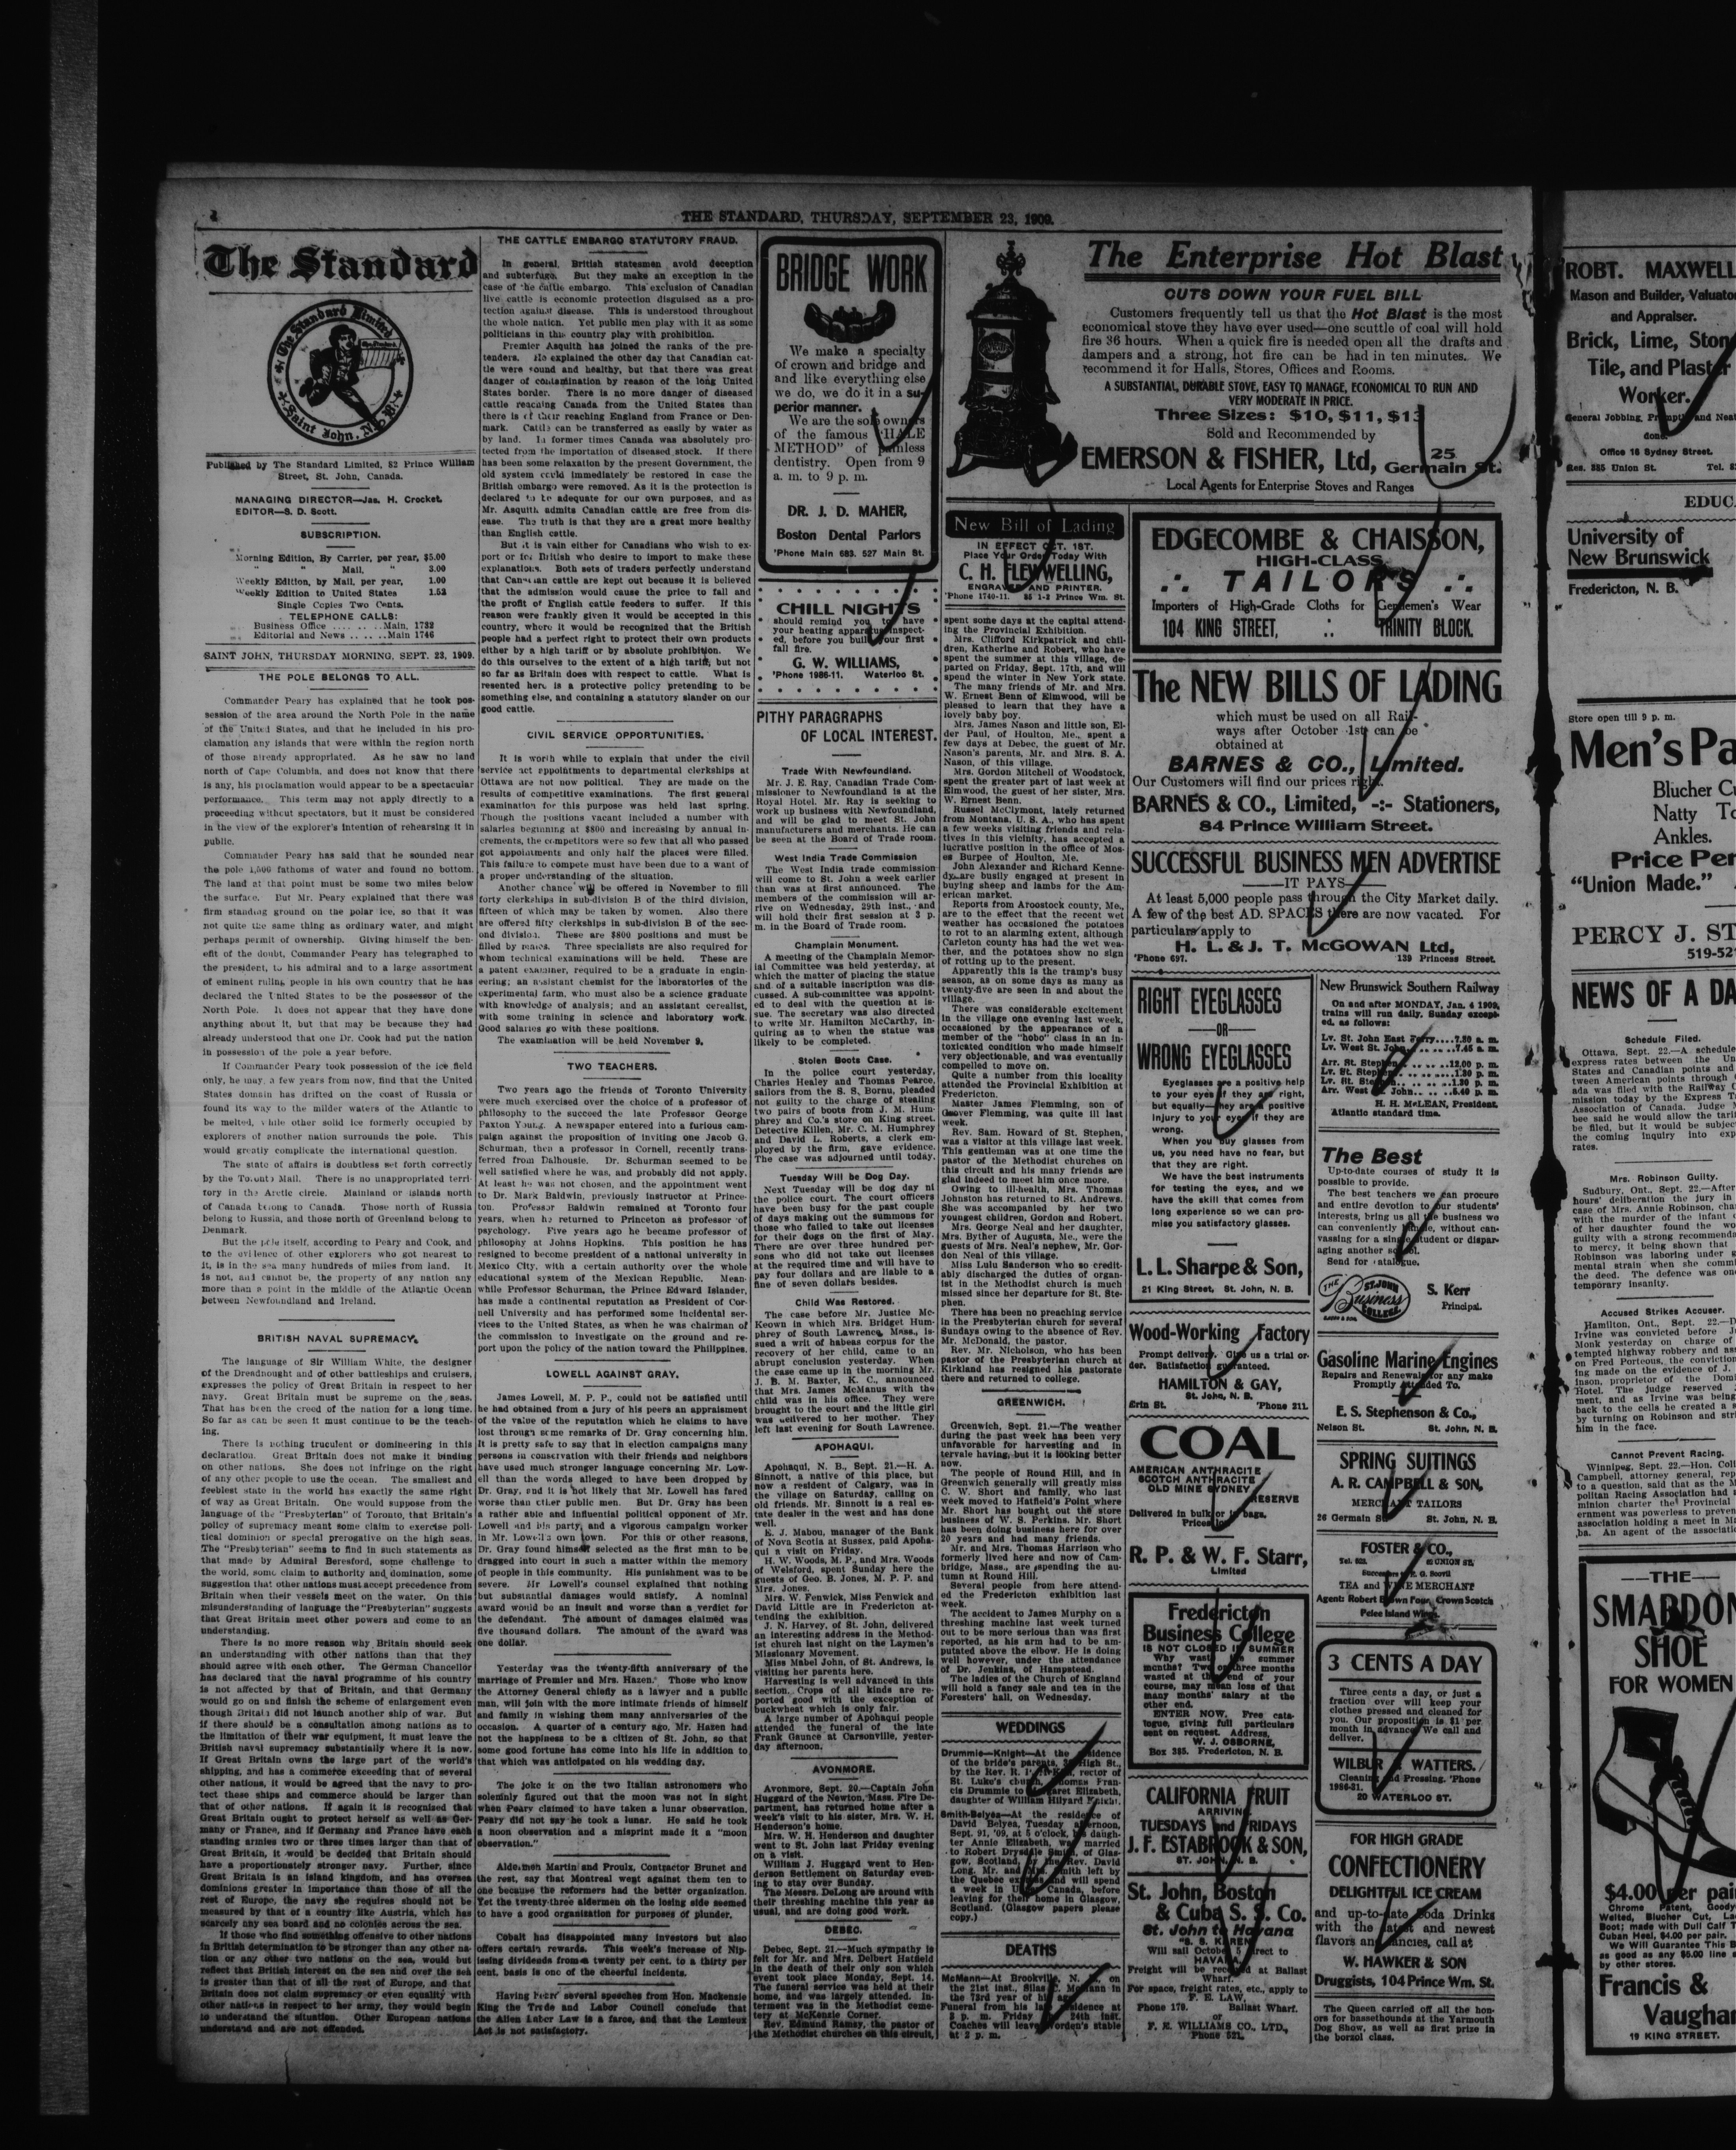 4
THE STANDARD, THURSDAY, SEPTEMBER 23, 1909.
The Standard
The Standard Limited
Saint John, N. B.
Published by The Standard Limited, 82 Prince William
Street, St. John, Canada.
MANAGING DIRECTOR—Jas. H. Crocket.
EDITOR—S. D. Scott.
SUBSCRIPTION.
Morning Edition, By Carrier, per year, $5.00
" " Mail, " 3.00
Weekly Edition, by Mail, per year, 1.00
Weekly Edition to United States 1.52
Single Copies Two Cents.
TELEPHONE CALLS:
Business Office .... .. ..Main, 1782
Editorial and News .. .. ..Main 1746
SAINT JOHN, THURSDAY MORNING, SEPT. 23, 1909.
THE POLE BELONGS TO ALL.
Commander Peary has explained that he took pos-
session of the area around the North Pole in the name
of the United States, and that he included in his pro-
clamation any islands that were within the region north
of those already appropriated. As he saw no land
north of Cape Columbia, and does not know that there
is any, his proclamation would appear to be a spectacular
performance. This term may not apply directly to a
proceeding without spectators, but it must be considered
in the view of the explorer's intention of rehearsing it in
public.
Commander Peary has said that he sounded near
the pole 1,500 fathoms of water and found no bottom.
The land at that point must be some two miles below
the surface. But Mr. Peary explained that there was
firm standing ground on the polar ice, so that it was
not quite the same thing as ordinary water, and might
perhaps permit of ownership. Giving himself the ben-
efit of the doubt, Commander Peary has telegraphed to
the president, to his admiral and to a large assortment
of eminent ruling people in his own country that he has
declared the United States to be the possessor of the
North Pole. It does not appear that they have done
anything about it, but that may be because they had
already understood that one Dr. Cook had put the nation
in possession of the pole a year before.
If Commander Peary took possession of the ice field
only, he may, a few years from now, find that the United
States domain has drifted on the coast of Russia or
found its way to the milder waters of the Atlantic to
be melted, while other solid ice formerly occupied by
explorers of another nation surrounds the pole. This
would greatly complicate the international question.
The state of affairs is doubtless set forth correctly
by the Toronto Mail. There is no unappropriated terri-
tory in the Arctic circle. Mainland or islands north
of Canada belong to Canada. Those north of Russia
belong to Russia, and those north of Greenland belong to
Denmark.
But the pole itself, according to Peary and Cook, and
to the evidence of other explorers who got nearest to
it, is in the sea many hundreds of miles from land. It
is not, and cannot be, the property of any nation any
more than a point in the middle of the Atlantic Ocean
between Newfoundland and Ireland.
BRITISH NAVAL SUPREMACY.
The language of Sir William White, the designer
of the Dreadnought and of other battleships and cruisers,
expresses the policy of Great Britain in respect to her
navy. Great Britain must be supreme on the seas.
That has been the creed of the nation for a long time.
So far as can be seen it must continue to be the teach-
ing.
There is nothing truculent or domineering in this
declaration. Great Britain does not make it binding
on other nations. She does not infringe on the right
of any other people to use the ocean. The smallest and
feeblest state in the world has exactly the same right
of way as Great Britain. One would suppose from the
language of the "Presbyterian" of Toronto, that Britain's
policy of supremacy meant some claim to exercise poli-
tical dominion or special prerogative on the high seas.
The "Presbyterian" seems to find in such statements as
that made by Admiral Beresford, some challenge to
the world, some claim to authority and domination, some
suggestion that other nations must accept precedence from
Britain when their vessels meet on the water. On this
misunderstanding of language the "Presbyterian" suggests
that Great Britain meet other powers and come to an
understanding.
There is no more reason why Britain should seek
an understanding with other nations than that they
should agree with each other. The German Chancellor
has declared that the naval programme of his country
is not affected by that of Britain, and that Germany
would go on and finish the scheme of enlargement even
though Britain did not launch another ship of war. But
if there should be a consultation among nations as to
the limitation of their war equipment, it must leave the
British naval supremacy substantially where it is now.
If Great Britain owns the large part of the world's
shipping, and has a commerce exceeding that of several
other nations, it would be agreed that the navy to pro-
tect these ships and commerce should be larger than
that of other nations. If again it is recognised that
Great Britain ought to protect herself as well as Ger-
many or France, and if Germany and France have each
standing armies two or three times larger than that of
Great Britain, it would be decided that Britain should
have a proportionately stronger navy. Further, since
Great Britain is an island kingdom, and has oversea
dominions greater in importance than those of all the
rest of Europe, the navy she requires should not be
measured by that of a country like Austria, which has
scarcely any sea board and no colonies across the sea.
If those who find something offensive to other nations
in British determination to be stronger than any other na-
tion or any other two nations on the sea, would but
reflect that British interest on the sea and over the sea
is greater than that of all the rest of Europe, and that
Britain does not claim supremacy or even equality with
other nations in respect to her army, they would begin
to understand the situation. Other European nations
understand and are not offended.
THE CATTLE EMBARGO STATUTORY FRAUD.
In general, British statesmen avoid deception
and subterfuge. But they make an exception in the
case of the cattle embargo. This exclusion of Canadian
live cattle is economic protection disguised as a pro-
tection against disease. This is understood throughout
the whole nation. Yet public men play with it as some
politicians in this country play with prohibition.
Premier Asquith has joined the ranks of the pre-
tenders. He explained the other day that Canadian cat-
tle were sound and healthy, but that there was great
danger of contamination by reason of the long United
States border. There is no more danger of diseased
cattle reaching Canada from the United States than
there is of their reaching England from France or Den-
mark. Cattle can be transferred as easily by water as
by land. In former times Canada was absolutely pro-
tected from the importation of diseased stock. If there
has been some relaxation by the present Government, the
old system could immediately be restored in case the
British embargo were removed. As it is the protection is
declared to be adequate for our own purposes, and as
Mr. Asquith admits Canadian cattle are free from dis-
ease. The truth is that they are a great more healthy
than English cattle.
But it is vain either for Canadians who wish to ex-
port or for British who desire to import to make these
explanations. Both sets of traders perfectly understand
that Canadian cattle are kept out because it is believed
that the admission would cause the price to fall and
the profit of English cattle feeders to suffer. If this
reason were frankly given it would be accepted in this
country, where it would be recognized that the British
people had a perfect right to protect their own products
either by a high tariff or by absolute prohibition. We
do this ourselves to the extent of a high tariff, but not
so far as Britain does with respect to cattle. What is
resented here is a protective policy pretending to be
something else, and containing a statutory slander on our
good cattle.
CIVIL SERVICE OPPORTUNITIES.
It is worth while to explain that under the civil
service act appointments to departmental clerkships at
Ottawa are not now political. They are made on the
results of competitive examinations. The first general
examination for this purpose was held last spring.
Though the positions vacant included a number with
salaries beginning at $800 and increasing by annual in-
crements, the competitors were so few that all who passed
got appointments and only half the places were filled.
This failure to compete must have been due to a want of
a proper understanding of the situation.
Another chance will be offered in November to fill
forty clerkships in sub-division B of the third division,
fifteen of which may be taken by women. Also there
are offered fifty clerkships in sub-division B of the sec-
ond division. These are $800 positions and must be
filled by males. Three specialists are also required for
whom technical examinations will be held. These are
a patent examiner, required to be a graduate in engin-
eering; an assistant chemist for the laboratories of the
experimental farm, who must also be a science graduate
with knowledge of analysis; and an assistant cerealist,
with some training in science and laboratory work.
Good salaries go with these positions.
The examination will be held November 9.
TWO TEACHERS.
Two years ago the friends of Toronto University
were much exercised over the choice of a professor of
philosophy to the succeed the late Professor George
Paxton Young. A newspaper entered into a furious cam-
paign against the proposition of inviting one Jacob G.
Schurman, then a professor in Cornell, recently trans-
ferred from Dalhousie. Dr. Schurman seemed to be
well satisfied where he was, and probably did not apply.
At least he was not chosen, and the appointment went
to Dr. Mark Baldwin, previously instructor at Prince-
ton. Professor Baldwin remained at Toronto four
years, when he returned to Princeton as professor of
psychology. Five years ago he became professor of
philosophy at Johns Hopkins. This position he has
resigned to become president of a national university in
Mexico City, with a certain authority over the whole
educational system of the Mexican Republic. Mean-
while Professor Schurman, the Prince Edward Islander,
has made a continental reputation as President of Cor-
nell University and has performed some incidental ser-
vices to the United States, as when he was chairman of
the commission to investigate on the ground and re-
port upon the policy of the nation toward the Philippines.
LOWELL AGAINST GRAY.
James Lowell, M. P. P., could not be satisfied until
he had obtained from a jury of his peers an appraisment
of the value of the reputation which he claims to have
lost through some remarks of Dr. Gray concerning him.
It is pretty safe to say that in election campaigns many
persons in conservation with their friends and neighbors
have used much stronger language concerning Mr. Low-
ell than the words alleged to have been dropped by
Dr. Gray, and it is not likely that Mr. Lowell has fared
worse than other public men. But Dr. Gray has been
a rather able and influential political opponent of Mr.
Lowell and his party, and a vigorous campaign worker
in Mr. Lowell's own town. For this or other reasons,
Dr. Gray found himself selected as the first man to be
dragged into court in such a matter within the memory
of people in this community. His punishment was to be
severe. Mr Lowell's counsel explained that nothing
but substantial damages would satisfy. A nominal
award would be an insult and worse than a verdict for
the defendant. The amount of damages claimed was
five thousand dollars. The amount of the award was
one dollar.
Yesterday was the twenty-fifth anniversary of the
marriage of Premier and Mrs. Hazen. Those who know
the Attorney General chiefly as a lawyer and a public
man, will join with the more intimate friends of himself
and family in wishing them many anniversaries of the
occasion. A quarter of a century ago, Mr. Hazen had
not the happiness to be a citizen of St. John, so that
some good fortune has come into his life in addition to
that which was anticipated on his wedding day.
The joke is on the two Italian astronomers who
solemnly figured out that the moon was not in sight
when Peary claimed to have taken a lunar observation.
Peary did not say he took a lunar. He said he took
a noon observation and a misprint made it a "moon
observation."
Aldermen Martin and Proulx, Contractor Brunet and
the rest, say that Montreal went against them ten to
one because the reformers had the better organization.
Yet the twenty-three aldermen on the losing side seemed
to have a good organization for purposes of plunder.
Cobalt has disappointed many investors but also
offers certain rewards. This week's increase of Nip-
issing dividends from a twenty per cent. to a thirty per
cent. basis is one of the cheerful incidents.
Having heard several speeches from Hon. Mackenzie
King the Trade and Labor Council conclude that
the Alien Labor Law is a farce, and that the Lemieux
Act is not satisfactory.
BRIDGE WORK
We make a specialty
of crown and bridge and
and like everything else
we do, we do it in a su-
perior manner.
We are the sole owners
of the famous "HALE
METHOD" of painless
dentistry. Open from 9
a. m. to 9 p. m.
DR. J. D. MAHER,
Boston Dental Parlors
'Phone Main 683. 527 Main St.
CHILL NIGHTS
should remind you to have
your heating apparatus inspect-
ed, before you build your first
fall fire.
G. W. WILLIAMS,
'Phone 1986-11. Waterloo St.
PITHY PARAGRAPHS
OF LOCAL INTEREST.
Trade With Newfoundland.
Mr. J. E. Ray, Canadian Trade Com-
missioner to Newfoundland is at the
Royal Hotel. Mr. Ray is seeking to
work up business with Newfoundland,
and will be glad to meet St. John
manufacturers and merchants. He can
be seen at the Board of Trade room.
West India Trade Commission
The West India trade commission
will come to St. John a week earlier
than was at first announced. The
members of the commission will ar-
rive on Wednesday, 29th inst., and
will hold their first session at 3 p.
m. in the Board of Trade room.
Champlain Monument.
A meeting of the Champlain Memor-
ial Committee was held yesterday, at
which the matter of placing the statue
and of a suitable inscription was dis-
cussed. A sub-committee was appoint-
ed to deal with the question at is-
sue. The secretary was also directed
to write Mr. Hamilton McCarthy, in-
quiring as to when the statue was
likely to be completed.
Stolen Boots Case.
In the police court yesterday,
Charles Healey and Thomas Pearce,
sailors from the S. S. Bornu, pleaded
not guilty to the charge of stealing
two pairs of boots from J. M. Hum-
phrey and Co.'s store on King street.
Detective Killen, Mr. C. M. Humphrey
and David L. Roberts, a clerk em-
ployed by the firm, gave evidence.
The case was adjourned until today.
Tuesday Will be Dog Day.
Next Tuesday will be dog day ni
the police court. The court officers
have been busy for the past couple
of days making out the summons for
those who failed to take out licenses
for their dogs on the first of May.
There are over three hundred per-
sons who did not take out licenses
at the required time and will have to
pay four dollars and are liable to a
fine of seven dollars besides.
Child Was Restored.
The case before Mr. Justice Mc-
Keown in which Mrs. Bridget Hum-
phrey of South Lawrence, Mass., is-
sued a writ of habeas corpus for the
recovery of her child, came to an
abrupt conclusion yesterday. When
the case came up in the morning Mr.
J. B. M. Baxter, K. C., announced
that Mrs. James McManus with the
child was in his office. They were
brought to the court and the little girl
was delivered to her mother. They
left last evening for South Lawrence.
APOHAQUI.
Apohaqui, N. B., Sept. 21.—H. A.
Sinnott, a native of this place, but
now a resident of Calgary, was in
the village on Saturday, calling on
old friends. Mr. Sinnott is a real es-
tate dealer in the west and has done
well.
E. J. Mabou, manager of the Bank
of Nova Scotia at Sussex, paid Apoha-
qui a visit on Friday.
H. W. Woods, M. P., and Mrs. Woods
of Welsford, spent Sunday here the
guests of Geo. B. Jones, M. P. P. and
Mrs. Jones.
Mrs. W. Fenwick, Miss Fenwick and
David Little are in Fredericton at-
tending the exhibition.
J. N. Harvey, of St. John, delivered
an interesting address in the Method-
ist church last night on the Laymen's
Missionary Movement.
Miss Mabel John, of St. Andrews, is
visiting her parents here.
Harvesting is well advanced in this
section. Crops of all kinds are re-
ported good with the exception of
buckwheat which is only fair.
A large number of Apohaqui people
attended the funeral of the late
Frank Gaunce at Carsonville, yester-
day afternoon.
AVONMORE.
Avonmore, Sept. 20.—Captain John
Huggard of the Newton, Mass. Fire De-
partment, has returned home after a
week's visit to his sister, Mrs. W. H.
Henderson's home.
Mrs. W. H. Henderson and daughter
went to St. John last Friday evening
on a visit.
William J. Huggard went to Hen-
derson Settlement on Saturday even-
ing to stay over Sunday.
The Messrs. DeLong are around with
their threshing machine this year as
usual, and are doing good work.
DEBEC.
Debec, Sept. 21.—Much sympathy is
felt for Mr. and Mrs. Delbert Hatfield
in the death of their only son which
event took place Monday, Sept. 14.
The funeral service was held at their
home, and was largely attended. In-
terment was in the Methodist ceme-
tery at McKenzie Corner.
Rev. Edmund Ramsy, the pastor of
the Methodist churches on this circuit,
The Enterprise Hot Blast
CUTS DOWN YOUR FUEL BILL
Customers frequently tell us that the Hot Blast is the most
economical stove they have ever used—one scuttle of coal will hold
fire 36 hours. When a quick fire is needed open all the drafts and
dampers and a strong, hot fire can be had in ten minutes. We
recommend it for Halls, Stores, Offices and Rooms.
A SUBSTANTIAL, DURABLE STOVE, EASY TO MANAGE, ECONOMICAL TO RUN AND
VERY MODERATE IN PRICE.
Three Sizes: $10, $11, $13
Sold and Recommended by
EMERSON & FISHER, Ltd, 25 Germain St.
Local Agents for Enterprise Stoves and Ranges
New Bill of Lading
IN EFFECT OCT. 1ST.
Place Your Order Today With
C. H. FLEWWELLING,
ENGRAVER AND PRINTER.
'Phone 1740-11. 85 1-2 Prince Wm. St.
spent some days at the capital attend-
ing the Provincial Exhibition.
Mrs. Clifford Kirkpatrick and chil-
dren, Katherine and Robert, who have
spent the summer at this village, de-
parted on Friday, Sept. 17th, and will
spend the winter in New York state.
The many friends of Mr. and Mrs.
W. Ernest Benn of Elmwood, will be
pleased to learn that they have a
lovely baby boy.
Mrs. James Nason and little son, El-
der Paul, of Houlton, Me., spent a
few days at Debec, the guest of Mr.
Nason's parents, Mr. and Mrs. S. A.
Nason, of this village.
Mrs. Gordon Mitchell of Woodstock,
spent the greater part of last week at
Elmwood, the guest of her sister, Mrs.
W. Ernest Benn.
Russel McClymont, lately returned
from Montana, U. S. A., who has spent
a few weeks visiting friends and rela-
tives in this vicinity, has accepted a
lucrative position in the office of Mos-
es Burpee of Houlton, Me.
John Alexander and Richard Kenne-
dy are busily engaged at present in
buying sheep and lambs for the Am-
erican market.
Reports from Aroostock county, Me.,
are to the effect that the recent wet
weather has occasioned the potatoes
to rot to an alarming extent, although
Carleton county has had the wet wea-
ther, and the potatoes show no sign
of rotting up to the present.
Apparently this is the tramp's busy
season, as on some days as many as
twenty-five are seen in and about the
village.
There was considerable excitement
in the village one evening last week,
occasioned by the appearance of a
member of the "hobo" class in an in-
toxicated condition who made himself
very objectionable, and was eventually
compelled to move on.
Quite a number from this locality
attended the Provincial Exhibition at
Fredericton.
Master James Flemming, son of
Grover Flemming, was quite ill last
week.
Rev. Sam. Howard of St. Stephen,
was a visitor at this village last week.
This gentleman was at one time the
pastor of the Methodist churches on
this circuit and his many friends are
glad indeed to meet him once more.
Owing to ill-health, Mrs. Thomas
Johnston has returned to St. Andrews.
She was accompanied by her two
youngest children, Gordon and Robert.
Mrs. George Neal and her daughter,
Mrs. Byther of Augusta, Me., were the
guests of Mrs. Neal's nephew, Mr. Gor-
don Neal of this village.
Miss Lulu Sanderson who so credit-
ably discharged the duties of organ-
ist in the Methodist church is much
missed since her departure for St. Ste-
phen.
There has been no preaching service
in the Presbyterian church for several
Sundays owing to the absence of Rev.
Mr. McDonald, the pastor.
Rev. Mr. Nicholson, who has been
pastor of the Presbyterian church at
Kirkland has resigned his pastorate
there and returned to college.
GREENWICH.
Greenwich, Sept. 21.—The weather
during the past week has been very
unfavorable for harvesting and in
tervale having, but it is looking better
now.
The people of Round Hill, and in
Greenwich generally will greatly miss
C. W. Short and family, who last
week moved to Hatfield's Point where
Mr. Short has bought out the store
business of W. S. Perkins. Mr. Short
has been doing business here for over
20 years and had many friends.
Mr. and Mrs. Thomas Harrison who
formerly lived here and now of Cam-
bridge, Mass., are spending the au-
tumn at Round Hill.
Several people from here attend-
ed the Fredericton exhibition last
week.
The accident to James Murphy on a
threshing machine last week turned
out to be more serious than was first
reported, as his arm had to be am-
putated above the elbow. He is doing
well however, under the attendance
of Dr. Jenkins, of Hampstead.
The ladies of the Church of England
will hold a fancy sale and tea in the
Foresters' hall, on Wednesday.
WEDDINGS
Drummie—Knight—At the residence
of the bride's parents, High St.,
by the Rev. R. P. McKim, rector of
St. Luke's church, Thomas Fran-
cis Drummie to Margaret Elizabeth,
daughter of William Hilyard Knight.
Smith-Belyea—At the residence of
David Belyea, Tuesday afternoon,
Sept. 21, '09, at 5 o'clock, his daugh-
ter Annie Elizabeth, was married
to Robert Drysdale Smith, of Glas-
gow, Scotland, by the Rev. David
Long. Mr. and Mrs. Smith left by
the Quebec express and will spend
a week in Upper Canada, before
leaving for their home in Glasgow,
Scotland. (Glasgow papers please
copy.)
DEATHS
McMann—At Brookville, N. B., on
the 21st inst., Silas C. McMann in
the 73rd year of his age.
Funeral from his late residence at
3 p. m. Friday 24th inst.
Coaches will leave Worden's stable
at 2 p. m.
EDGECOMBE & CHAISSON,
HIGH-CLASS
TAILORS
Importers of High-Grade Cloths for Gentlemen's Wear
104 KING STREET, TRINITY BLOCK.
The NEW BILLS OF LADING
which must be used on all Rail-
ways after October 1st can be
obtained at
BARNES & CO., Limited.
Our Customers will find our prices right.
BARNES & CO., Limited, -:- Stationers,
84 Prince William Street.
SUCCESSFUL BUSINESS MEN ADVERTISE
—IT PAYS—
At least 5,000 people pass through the City Market daily.
A few of the best AD. SPACES there are now vacated. For
particulars apply to
H. L. & J. T. McGOWAN Ltd,
'Phone 697. 139 Princess Street.
RIGHT EYEGLASSES
—OR—
WRONG EYEGLASSES
Eyeglasses are a positive help
to your eyes if they are right,
but equally they are a positive
injury to your eyes if they are
wrong.
When you buy glasses from
us, you need have no fear, but
that they are right.
We have the best instruments
for testing the eyes, and we
have the skill that comes from
long experience so we can pro-
mise you satisfactory glasses.
L. L. Sharpe & Son,
21 King Street, St. John, N. B.
Wood-Working Factory
Prompt delivery. Give us a trial or-
der. Satisfaction guaranteed.
HAMILTON & GAY,
St. John, N. B.
Erin St. 'Phone 211.
COAL
AMERICAN ANTHRACITE
SCOTCH ANTHRACITE
OLD MINE SYDNEY
RESERVE
Delivered in bulk or in bags.
Prices low.
R. P. & W. F. Starr,
Limited
Fredericton
Business College
IS NOT CLOSED IN SUMMER
Why waste the summer
months? Two or three months
wasted at the end of your
course, may mean loss of that
many months' salary at the
other end.
ENTER NOW. Free cata-
logue, giving full particulars
sent on request. Address,
W. J. OSBORNE,
Box 385. Fredericton, N. B.
CALIFORNIA FRUIT
ARRIVING
TUESDAYS and FRIDAYS
J. F. ESTABROOK & SON,
ST. JOHN, N. B.
St. John, Boston
& Cuba S. S. Co.
St. John to Havana
"S. S. KAREN"
Will sail October 5 direct to
HAVANA.
Freight will be received at Ballast
Wharf.
For space, freight rates, etc., apply to
F. E. LAW,
Phone 179. Ballast Wharf.
or
F. E. WILLIAMS CO., LTD.,
Phone 521.
New Brunswick Southern Railway
On and after MONDAY, Jan. 4 1909,
trains will run daily. Sunday except-
ed, as follows:
Lv. St. John East Ferry....7.30 a. m.
Lv. West St. John.. .. ....7.45 a. m.
Arr. St. Stephen.. .. ....12.00 p. m.
Lv. St. Stephen.. .. .. ....1.30 p. m.
Lv. St. Stephen.. .. .. ....1.30 p. m.
Arr. West St. John.. .. ..5.40 p. m.
H. H. McLEAN, President.
Atlantic standard time.
The Best
Up-to-date courses of study it is
possible to provide.
The best teachers we can procure
and entire devotion to our students'
interests, bring us all the business we
can conveniently handle, without can-
vassing for a single student or dispar-
aging another school.
Send for catalogue.
THE ST. JOHN Business COLLEGE
S. Kerr
Principal.
Gasoline Marine Engines
Repairs and Renewals for any make
Promptly Attended To.
E. S. Stephenson & Co.,
Nelson St. St. John, N. B.
SPRING SUITINGS
A. R. CAMPBELL & SON,
MERCHANT TAILORS
26 Germain St. St. John, N. B.
FOSTER & CO.,
Tel. 523. UNION ST.
TEA and WINE MERCHANT
Agent: Robert Brown Four Crown Scotch
Pelee Island Wines.
3 CENTS A DAY
Three cents a day, or just a
fraction over will keep your
clothes pressed and cleaned for
you. Our proposition is $1 per
month in advance. We call and
deliver.
WILBUR & WATTERS.
Cleaning and Pressing. 'Phone
1986-31.
20 WATERLOO ST.
FOR HIGH GRADE
CONFECTIONERY
DELIGHTFUL ICE CREAM
and up-to-date Soda Drinks
with the latest and newest
flavors and fancies, call at
W. HAWKER & SON
Druggists, 104 Prince Wm. St.
The Queen carried off all the hon-
ors for bassethounds at the Yarmouth
Dog Show, as well as first prize in
the borzoi class.
ROBT. MAXWELL
Mason and Builder, Valuator
and Appraiser.
Brick, Lime, Ston
Tile, and Plaster
Worker.
General Jobbing Promptly and Neat
done.
Office 16 Sydney Street.
Res. 385 Union St. Tel. 8
EDUC
University of
New Brunswick
Fredericton, N. B.
Store open till 9 p. m.
Men's Pa
Blucher Cu
Natty To
Ankles.
Price Per
"Union Made."
PERCY J. ST
519-52
NEWS OF A DA
Schedule Filed.
Ottawa, Sept. 22.—A schedule
express rates between the Un
States and Canadian points and
tween American points through
ada was filed with the Railway
mission today by the Express Tr
Association of Canada. Judge M
bee said he would allow the tarif
be filed, but it would be subject
the coming inquiry into exp
rates.
Mrs. Robinson Guilty.
Sudbury, Ont., Sept. 22.—After
hours' deliberation the jury in
case of Mrs. Annie Robinson, cha
with the murder of the infant
of her daughter found the wo
guilty with a strong recommenda
to mercy, it being shown that
Robinson was laboring under s
mental strain when she comm
the deed. The defence was one
temporary insanity.
Accused Strikes Accuser.
Hamilton, Ont., Sept. 22.—D
Irvine was convicted before J
Monk yesterday on charge of
tempted highway robbery and as
on Fred Porteous, the conviction
ing made on the evidence of J.
inson, proprietor of the Domi
Hotel. The judge reserved j
ment, and as Irvine was being
back to the cells he created a s
by turning on Robinson and stri
him in the face.
Cannot Prevent Racing.
Winnipeg, Sept. 22.—Hon. Coll
Campbell, attorney general, rep
to a question, said that as the M
politan Racing Association had
minion charter the Provincial
ernment was powerless to preven
association holding a meet in Ma
ba. An agent of the associati
—THE—
SMARDON
SHOE
FOR WOMEN
$4.00 per pair
Chrome Patent, Goody
Welted, Blucher Cut, La
Boot; made with Dull Calf T
Cuban Heel, $4.00 per pair.
We Will Guarantee This B
as good as any $5.00 line
by other stores.
Francis &
Vaughan
19 KING STREET.